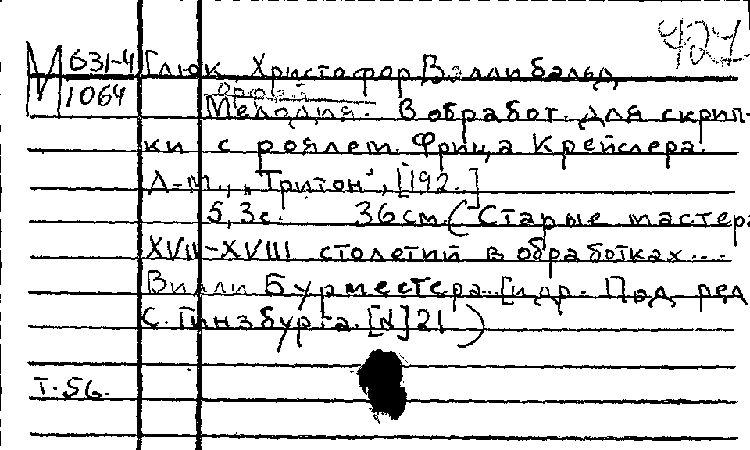 427
М 631-4 Глюк, Христофор Виллибальд
1064
Орфей
Мелодия. В обработ. для скрип-
ки с роялем Фрица Крейслера.
Л-м., "Тритон", [192.]
5,3с. 36 см. (Старые мастера
XVII-XVIII столетий в обработках...
Вилли Бурместера. [и др. Под ред
С. Гинзбурга. [N] 21)
Т-56.